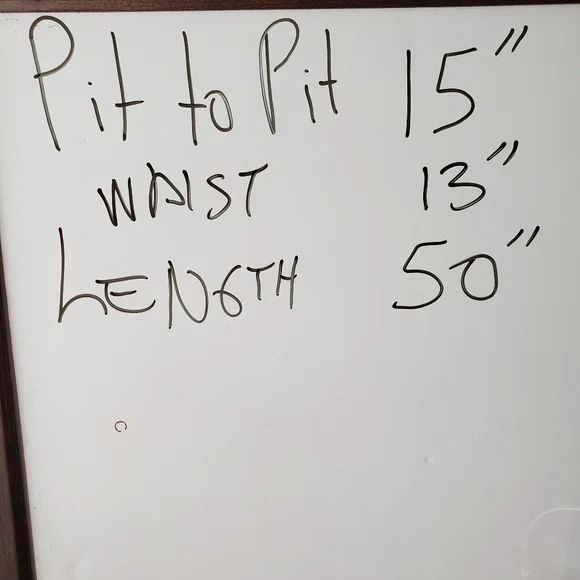 Pit to Pit 15"
WAIST 13"
LENGTH 50"